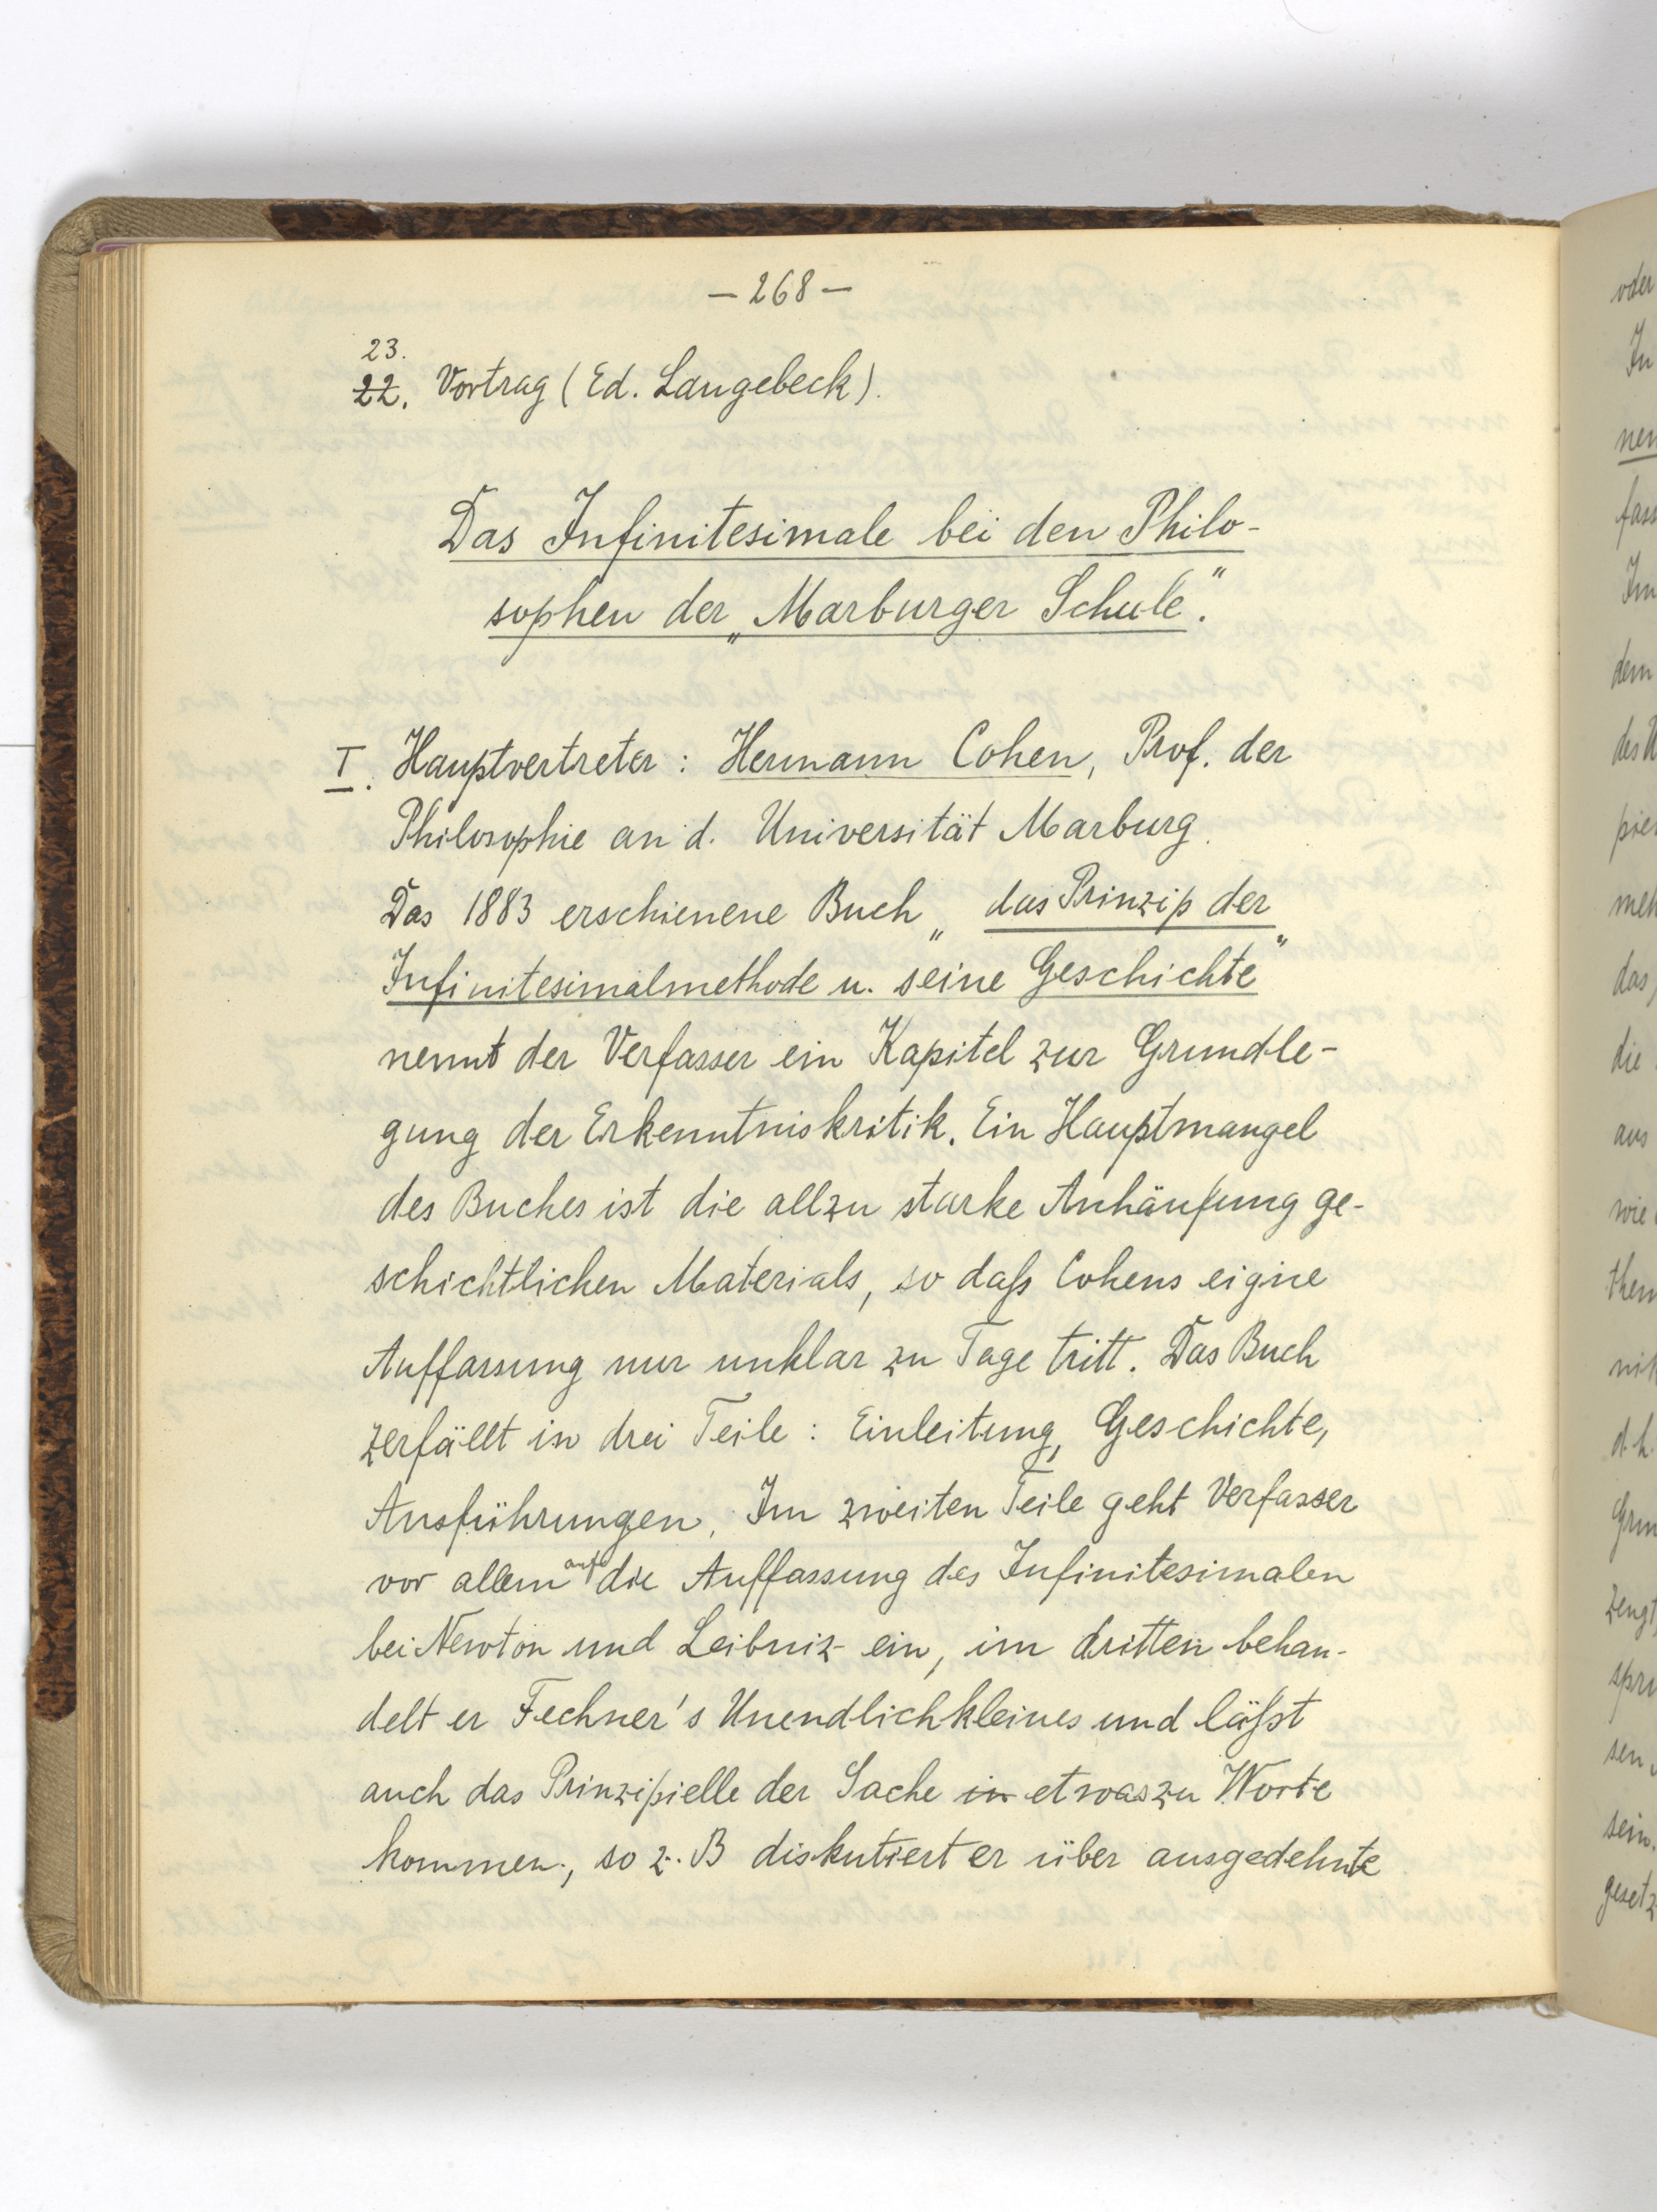 – 268 –
23.
22. Vortrag (Ed. Langebeck).
Das Infinitesimale bei den Philo-
sophen der „Marburger Schule“.
I. Hauptvertreter: Hermann Cohen, Prof. der
Philosophie an d. Universität Marburg.
Das 1883 erschienene Buch „das Prinzip der
Infinitesimalmethode u. seine Geschichte“
nennt der Verfasser ein Kapitel zur Grundle-
gung der Erkenntniskritik. Ein Hauptmangel
des Buches ist die allzu starke Anhäufung ge-
schichtlichen Materials, so daſs Cohens eigne
Auffassung nur unklar zu Tage tritt. Das Buch
zerfällt in drei Teile: Einleitung, Geschichte,
Ausführungen. Im zweiten Teile geht Verfasser
vor allem auf die Auffassung des Infinitesimalen
bei Newton und Leibniz ein, im dritten behan-
delt er Fechner's Unendlichkleines und läſst
auch das Prinzipielle der Sache in etwas zu Worte
kommen, so z. B diskutiert er über ausgedehnte
oder
In
nen
fass
Im
dem
des U
meh
das,
die
aus
wie
then
d. h.
zengt
sen,
sein.
gesetz